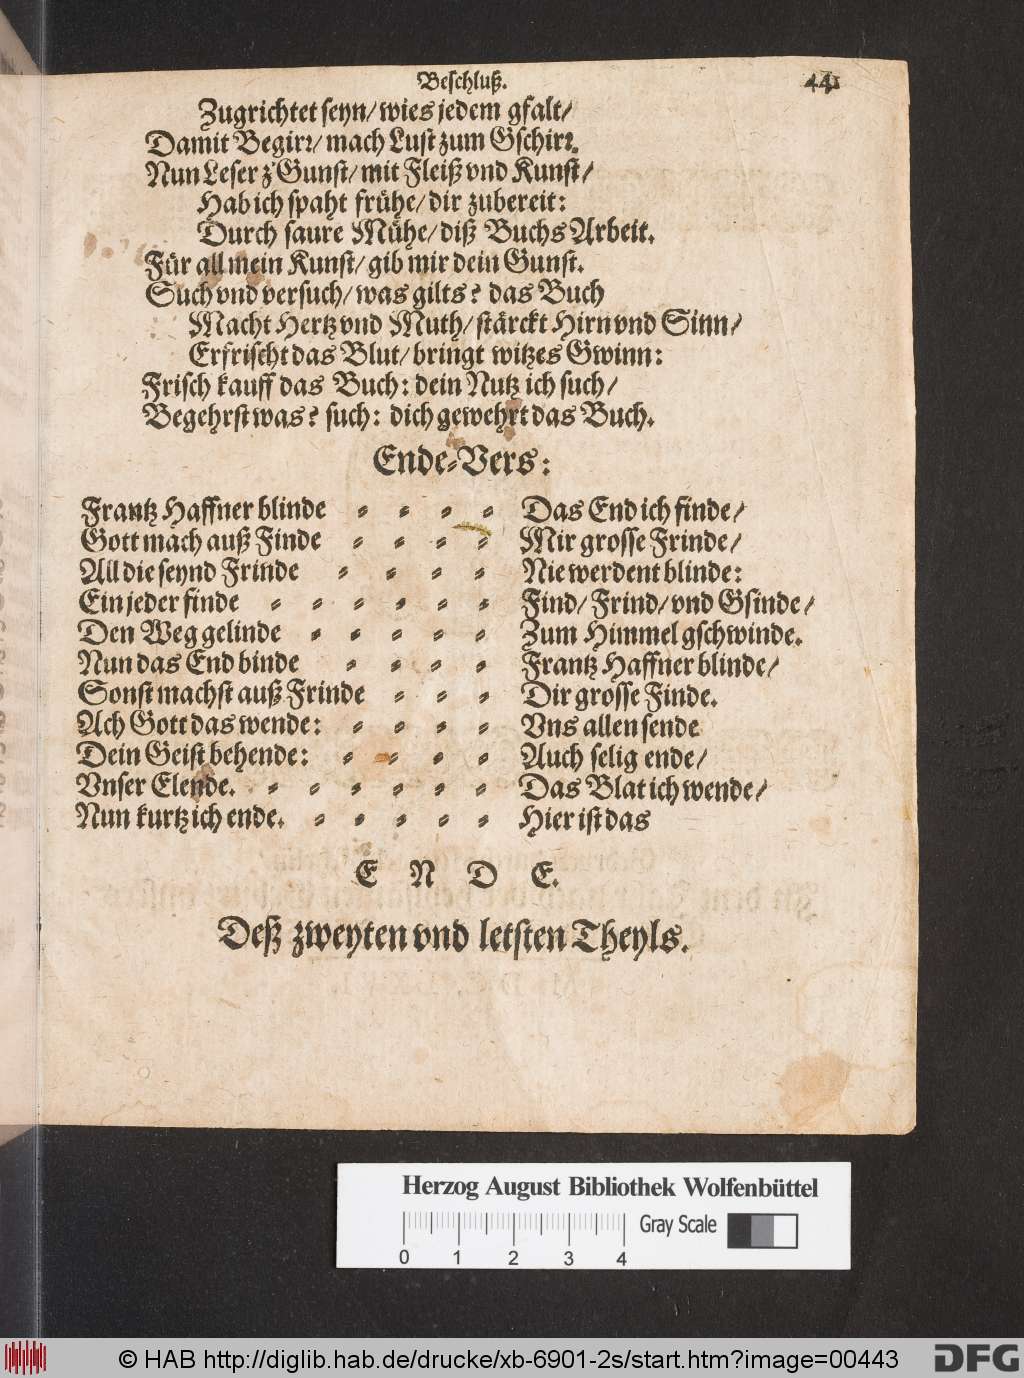 Beschluß. 441
Zugrichtet seyn/ wies jedem gfalt/
Damit Begirr/ mach Lust zum Gschirr.
Nun Leser z'Gunst/ mit Fleiß vnd Kunst/
Hab ich spaht frühe/ dir zubereit:
Durch saure Mühe/ diß Buchs Arbeit.
Für all mein Kunst/ gib mir dein Gunst.
Such vnd versuch/ was gilts? das Buch
Macht Hertz vnd Muth/ stärckt Hirn vnd Sinn/
Erfrischt das Blut/ bringt witzes Gwinn:
Frisch kauff das Buch: dein Nutz ich such/
Begehrst was? such: dich gewehrt das Buch.
Ende-Vers:
Frantz Haffner blinde - - - - Das End ich finde/
Gott mach auß Finde - - - - Mir grosse Frinde/
All die seynd Frinde - - - - Nie werdent blinde:
Ein jeder finde - - - - - - Find/ Frind/ vnd Gsinde/
Den Weg gelinde - - - - - Zum Himmel gschwinde.
Nun das End binde - - - - Frantz Haffner blinde/
Sonst machst auß Frinde - - - Dir grosse Finde.
Ach Gott das wende: - - - - Vns allen sende
Dein Geist behende: - - - - Auch selig ende/
Vnser Elende. - - - - - - Das Blat ich wende/
Nun kurtz ich ende. - - - - - Hier ist das
E N D E.
Deß zweyten vnd letsten Theyls.
Herzog August Bibliothek Wolfenbüttel
Gray Scale
0 1 2 3 4
© HAB http://diglib.hab.de/drucke/xb-6901-2s/start.htm?image=00443
DFG